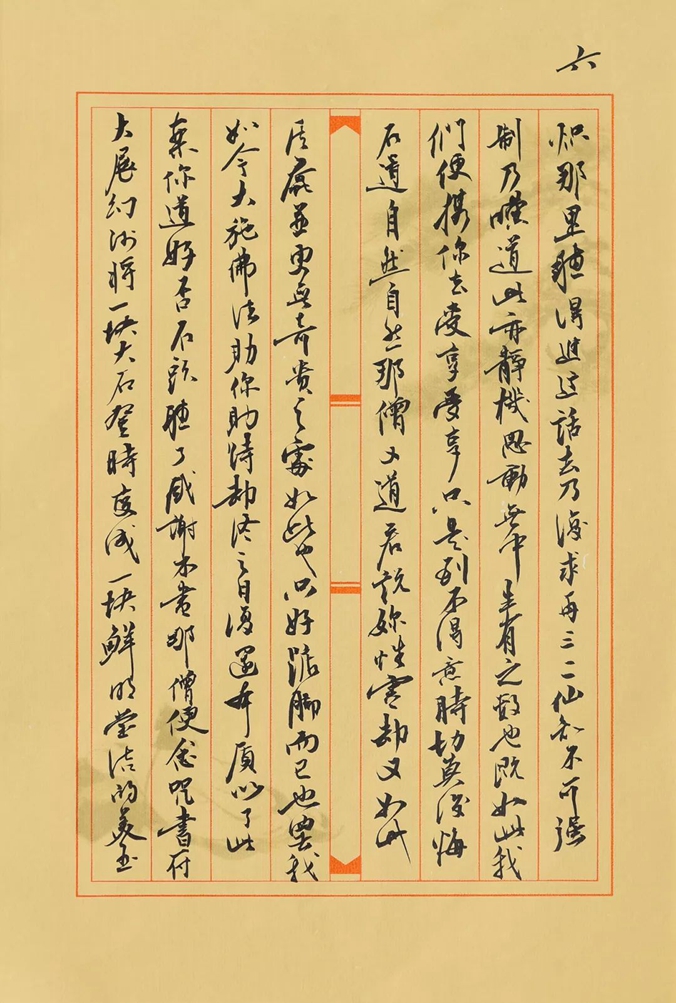 六
炽那里聴得進這話去乃復求再三二仙知不可强
制乃嘆道此亦靜機思動無中生有之数也既如此我
們便携你去受享受享只是到不得意時切莫後悔
石道自然自然那僧又道若説妳性灵却又如此
质蠢並更無奇贵之處如此也只好踮脚而已也罷我
如今大施佛法助你助待劫终之日復還本质以了此
案你道好否石頭聴了感謝不尽那僧便念咒書符
大展幻術將一块大石登時变成一块鮮明莹洁的美玉